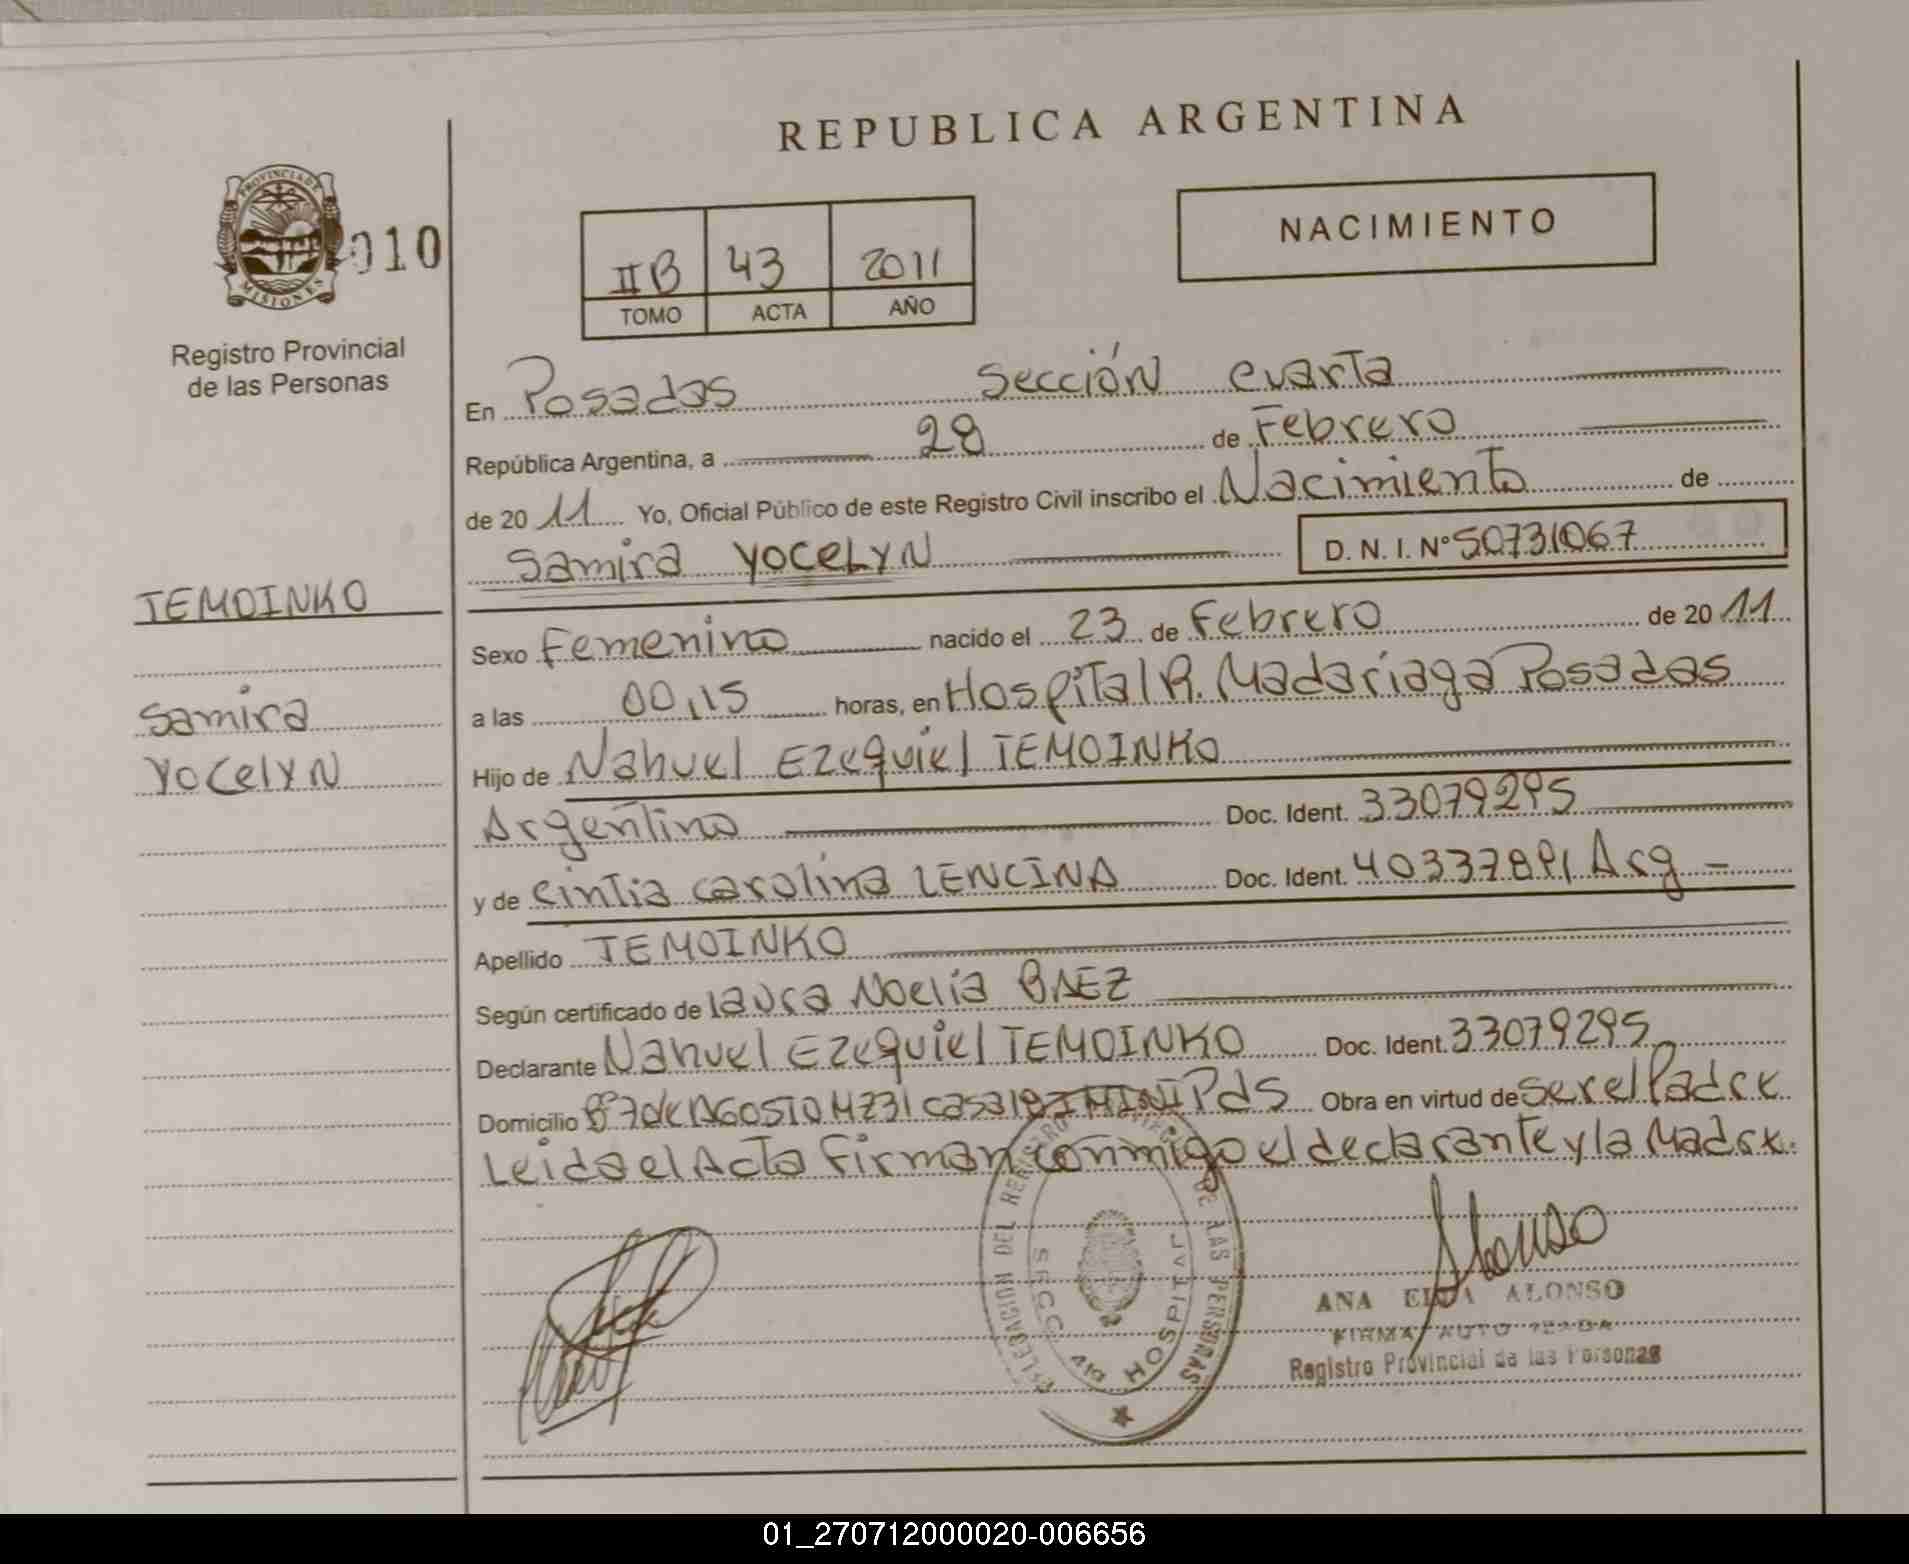 REPUBLICA ARGENTINA
PROVINCIA DE
MISIONES
010
Registro Provincial
de las Personas
II B 43 2011
TOMO ACTA AÑO
NACIMIENTO
En Posadas Sección cuarta
República Argentina, a 28 de Febrero
de 20 11 Yo, Oficial Público de este Registro Civil inscribo el Nacimiento de
Samira YOCELYN D.N.I. Nº 50731067
TEMOINKO
Samira
YOCelYN
Sexo Femenino nacido el 23 de Febrero de 20 11
a las 00,15 horas, en Hospital R. Madariaga Posadas
Hijo de Nahuel Ezequiel TEMOINKO
Argentino Doc. Ident. 33079295
y de Cintia Carolina LENCINA Doc. Ident. 40337891 Arg -
Apellido TEMOINKO
Según certificado de Laura Noelia BAEZ
Declarante Nahuel Ezequiel TEMOINKO Doc. Ident. 33079295
Domicilio Bº 7 de AGOSTO MZ31 casa Pds Obra en virtud de ser el Padre
Leida el Acta Firman conmigo el declarante y la Madre.
DEL REGISTRO DE LAS PERSONAS
SECC. 4ta HOSPITAL
Alonso
ANA ALONSO
FIRMA AUTORIZADA
Registro Provincial de las Personas
01_270712000020-006656